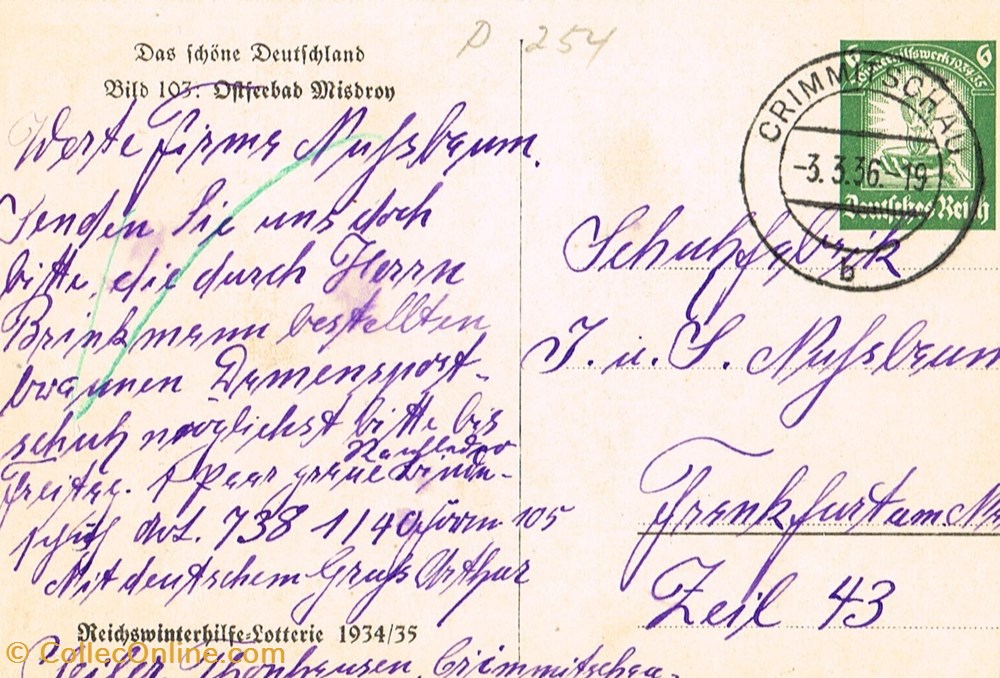 D 254
Das schöne Deutschland
Bild 103: Ostseebad Misdroy
Werte Firma Nußbaum.
Senden Sie uns doch
bitte, die durch Herrn
Brinkmann bestellten
braunen Damensport-
schuh möglichst bitte bis
Freitag. 1 Paar graue
schuh Art. 738 1/40 105
Mit deutschem Gruß Arthur
Reichswinterhilfe-Lotterie 1934/35
Crimmitschau.
6 Winterhilfswerk 1934/35 6
Deutsches Reich
CRIMMITSCHAU
-3.3.36.-19
b
Schuhfabrik
J. u. S. Nußbaum
Frankfurt am
Zeil 43
© CollecOnline.com